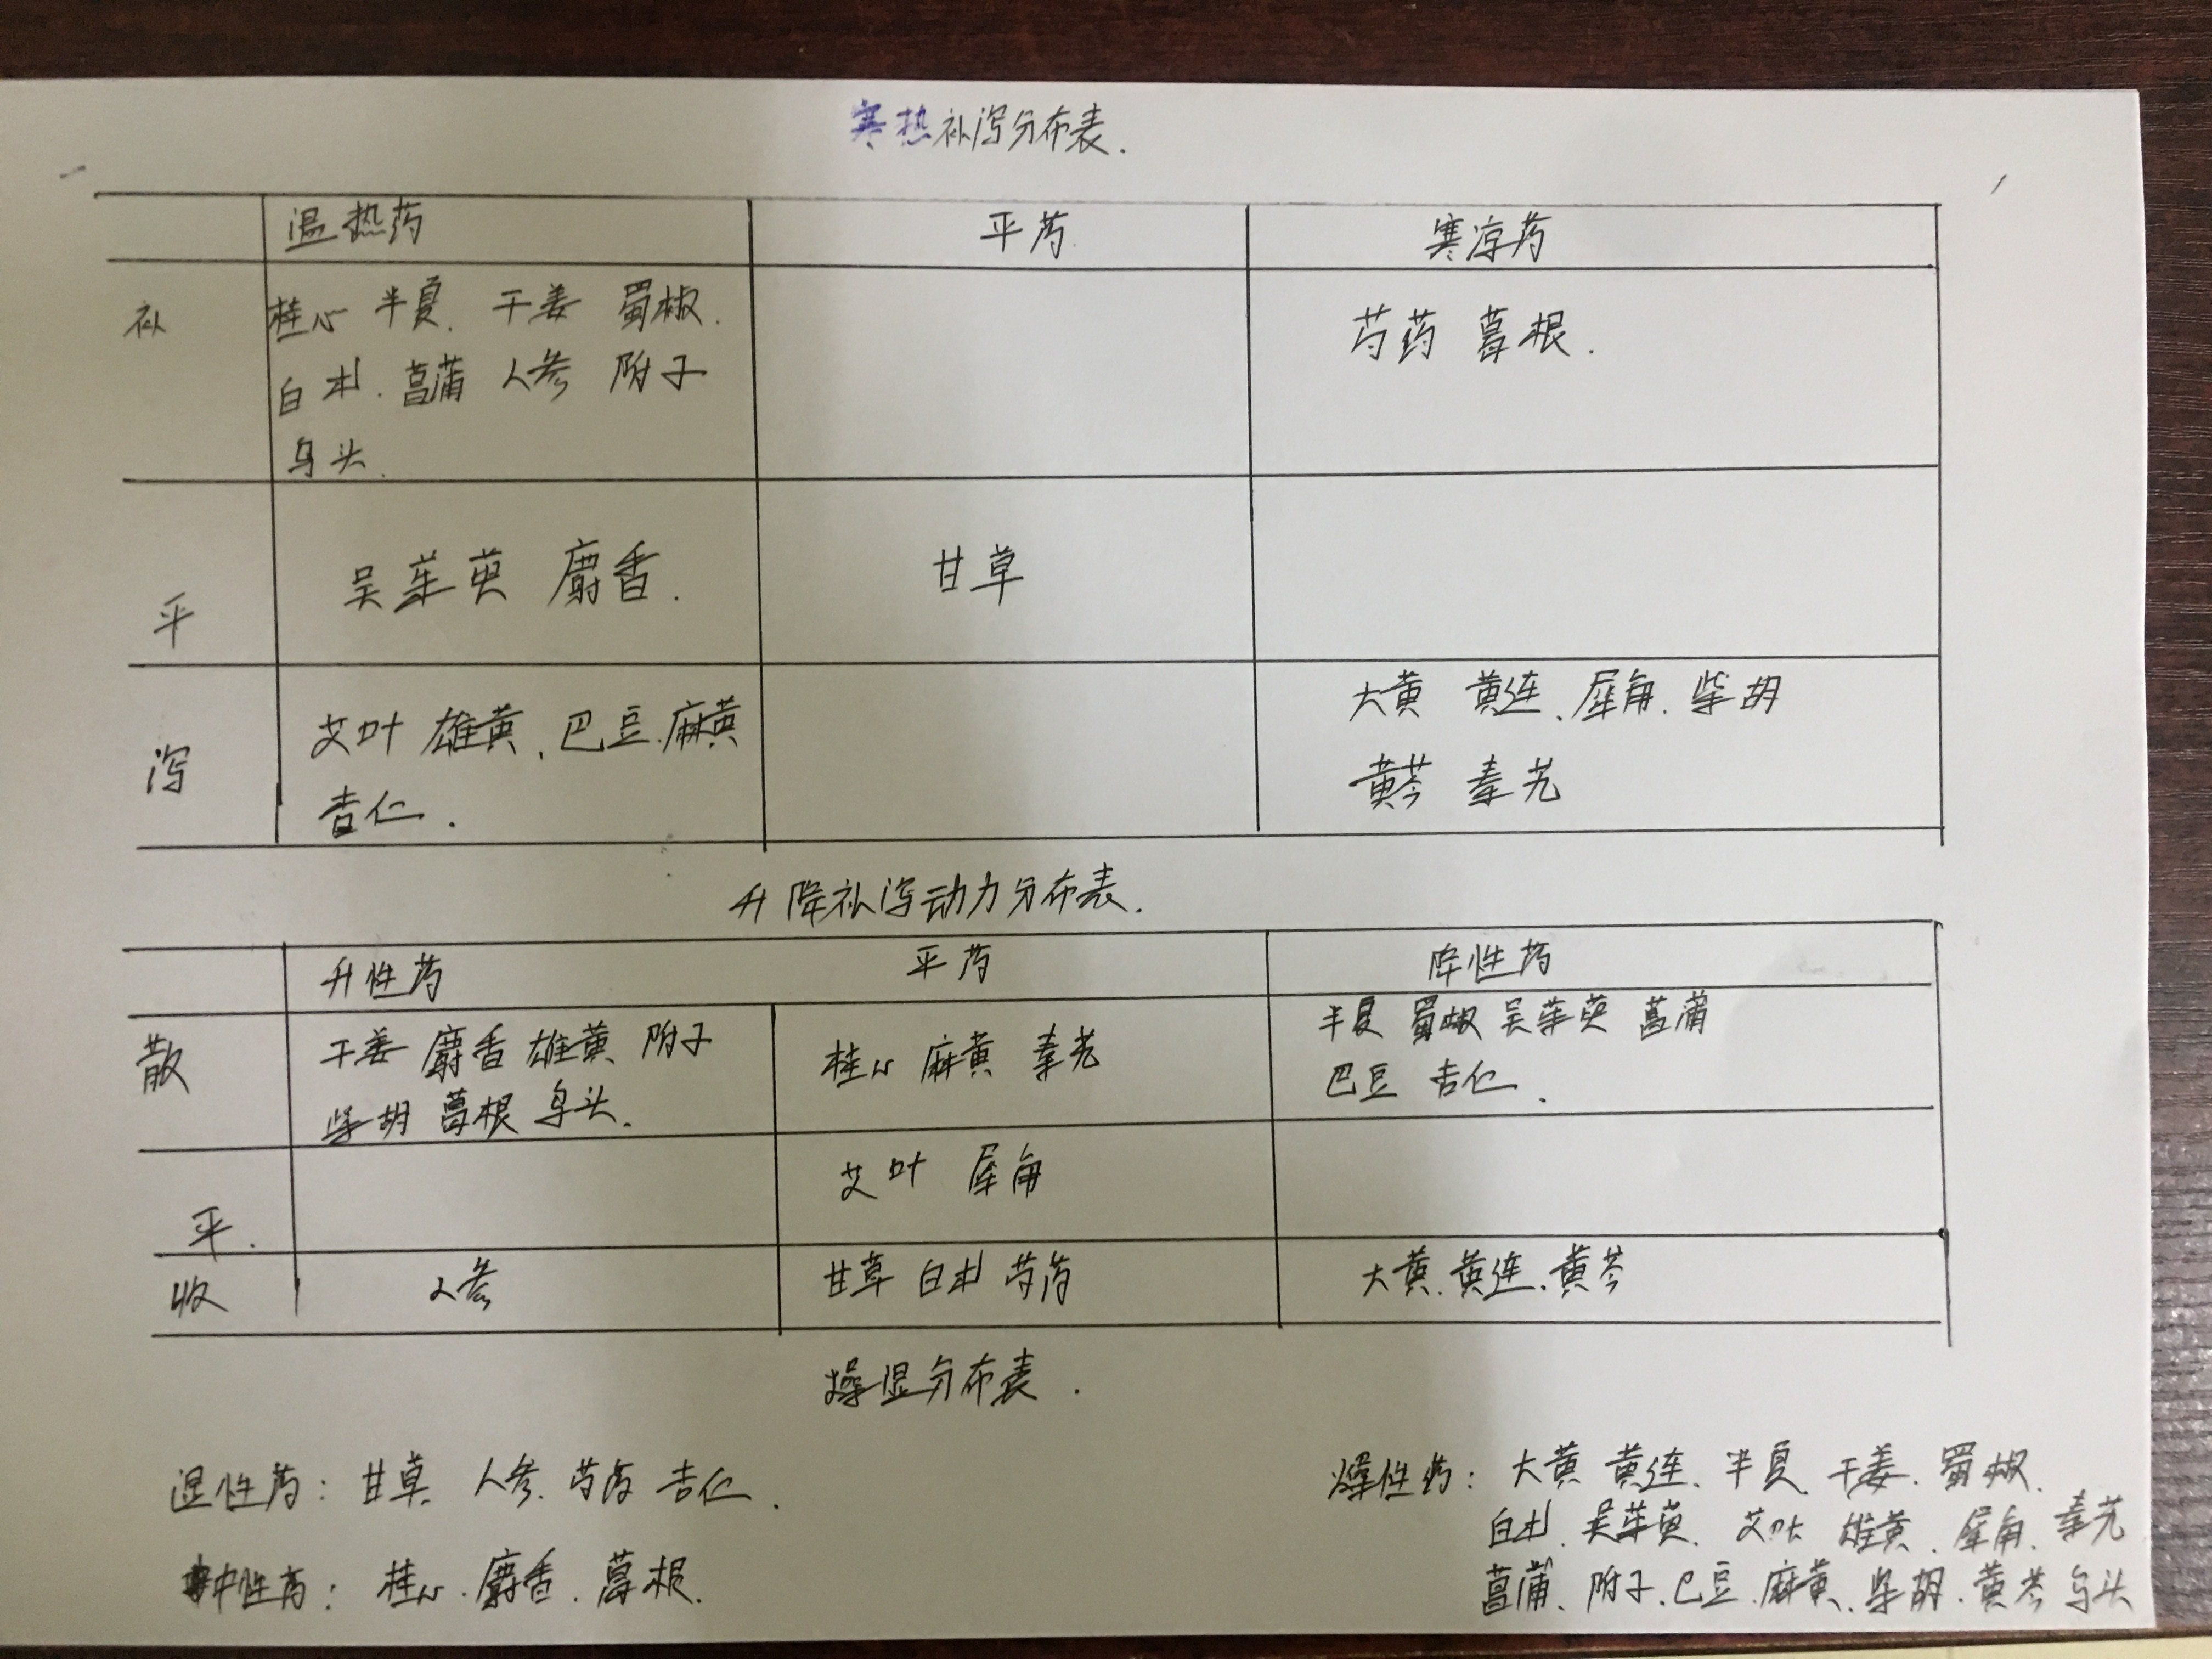 寒热补泻分布表.
温热药 平药 寒凉药
补 桂心 半夏. 干姜 蜀椒. 芍药 葛根.
白术. 菖蒲 人参 附子
乌头.
平 吴茱萸 麝香. 甘草
泻 艾叶 雄黄、巴豆.麻黄 大黄 黄连、犀角. 柴胡
杏仁. 黄芩 秦艽
升降补泻动力分布表.
升性药 平药 降性药
散 干姜 麝香 雄黄 附子 桂心 麻黄 秦艽 半夏 蜀椒 吴茱萸 菖蒲
柴胡 葛根 乌头. 巴豆 杏仁.
平. 艾叶 犀角
收 人参 甘草 白术 芍药 大黄.黄连.黄芩
燥湿分布表.
湿性药: 甘草 人参. 芍药 杏仁.
中性药: 桂心.麝香.葛根.
燥性药: 大黄 黄连. 半夏 干姜. 蜀椒.
白术. 吴茱萸. 艾叶 雄黄. 犀角. 秦艽
菖蒲、附子.巴豆.麻黄、柴胡.黄芩 乌头